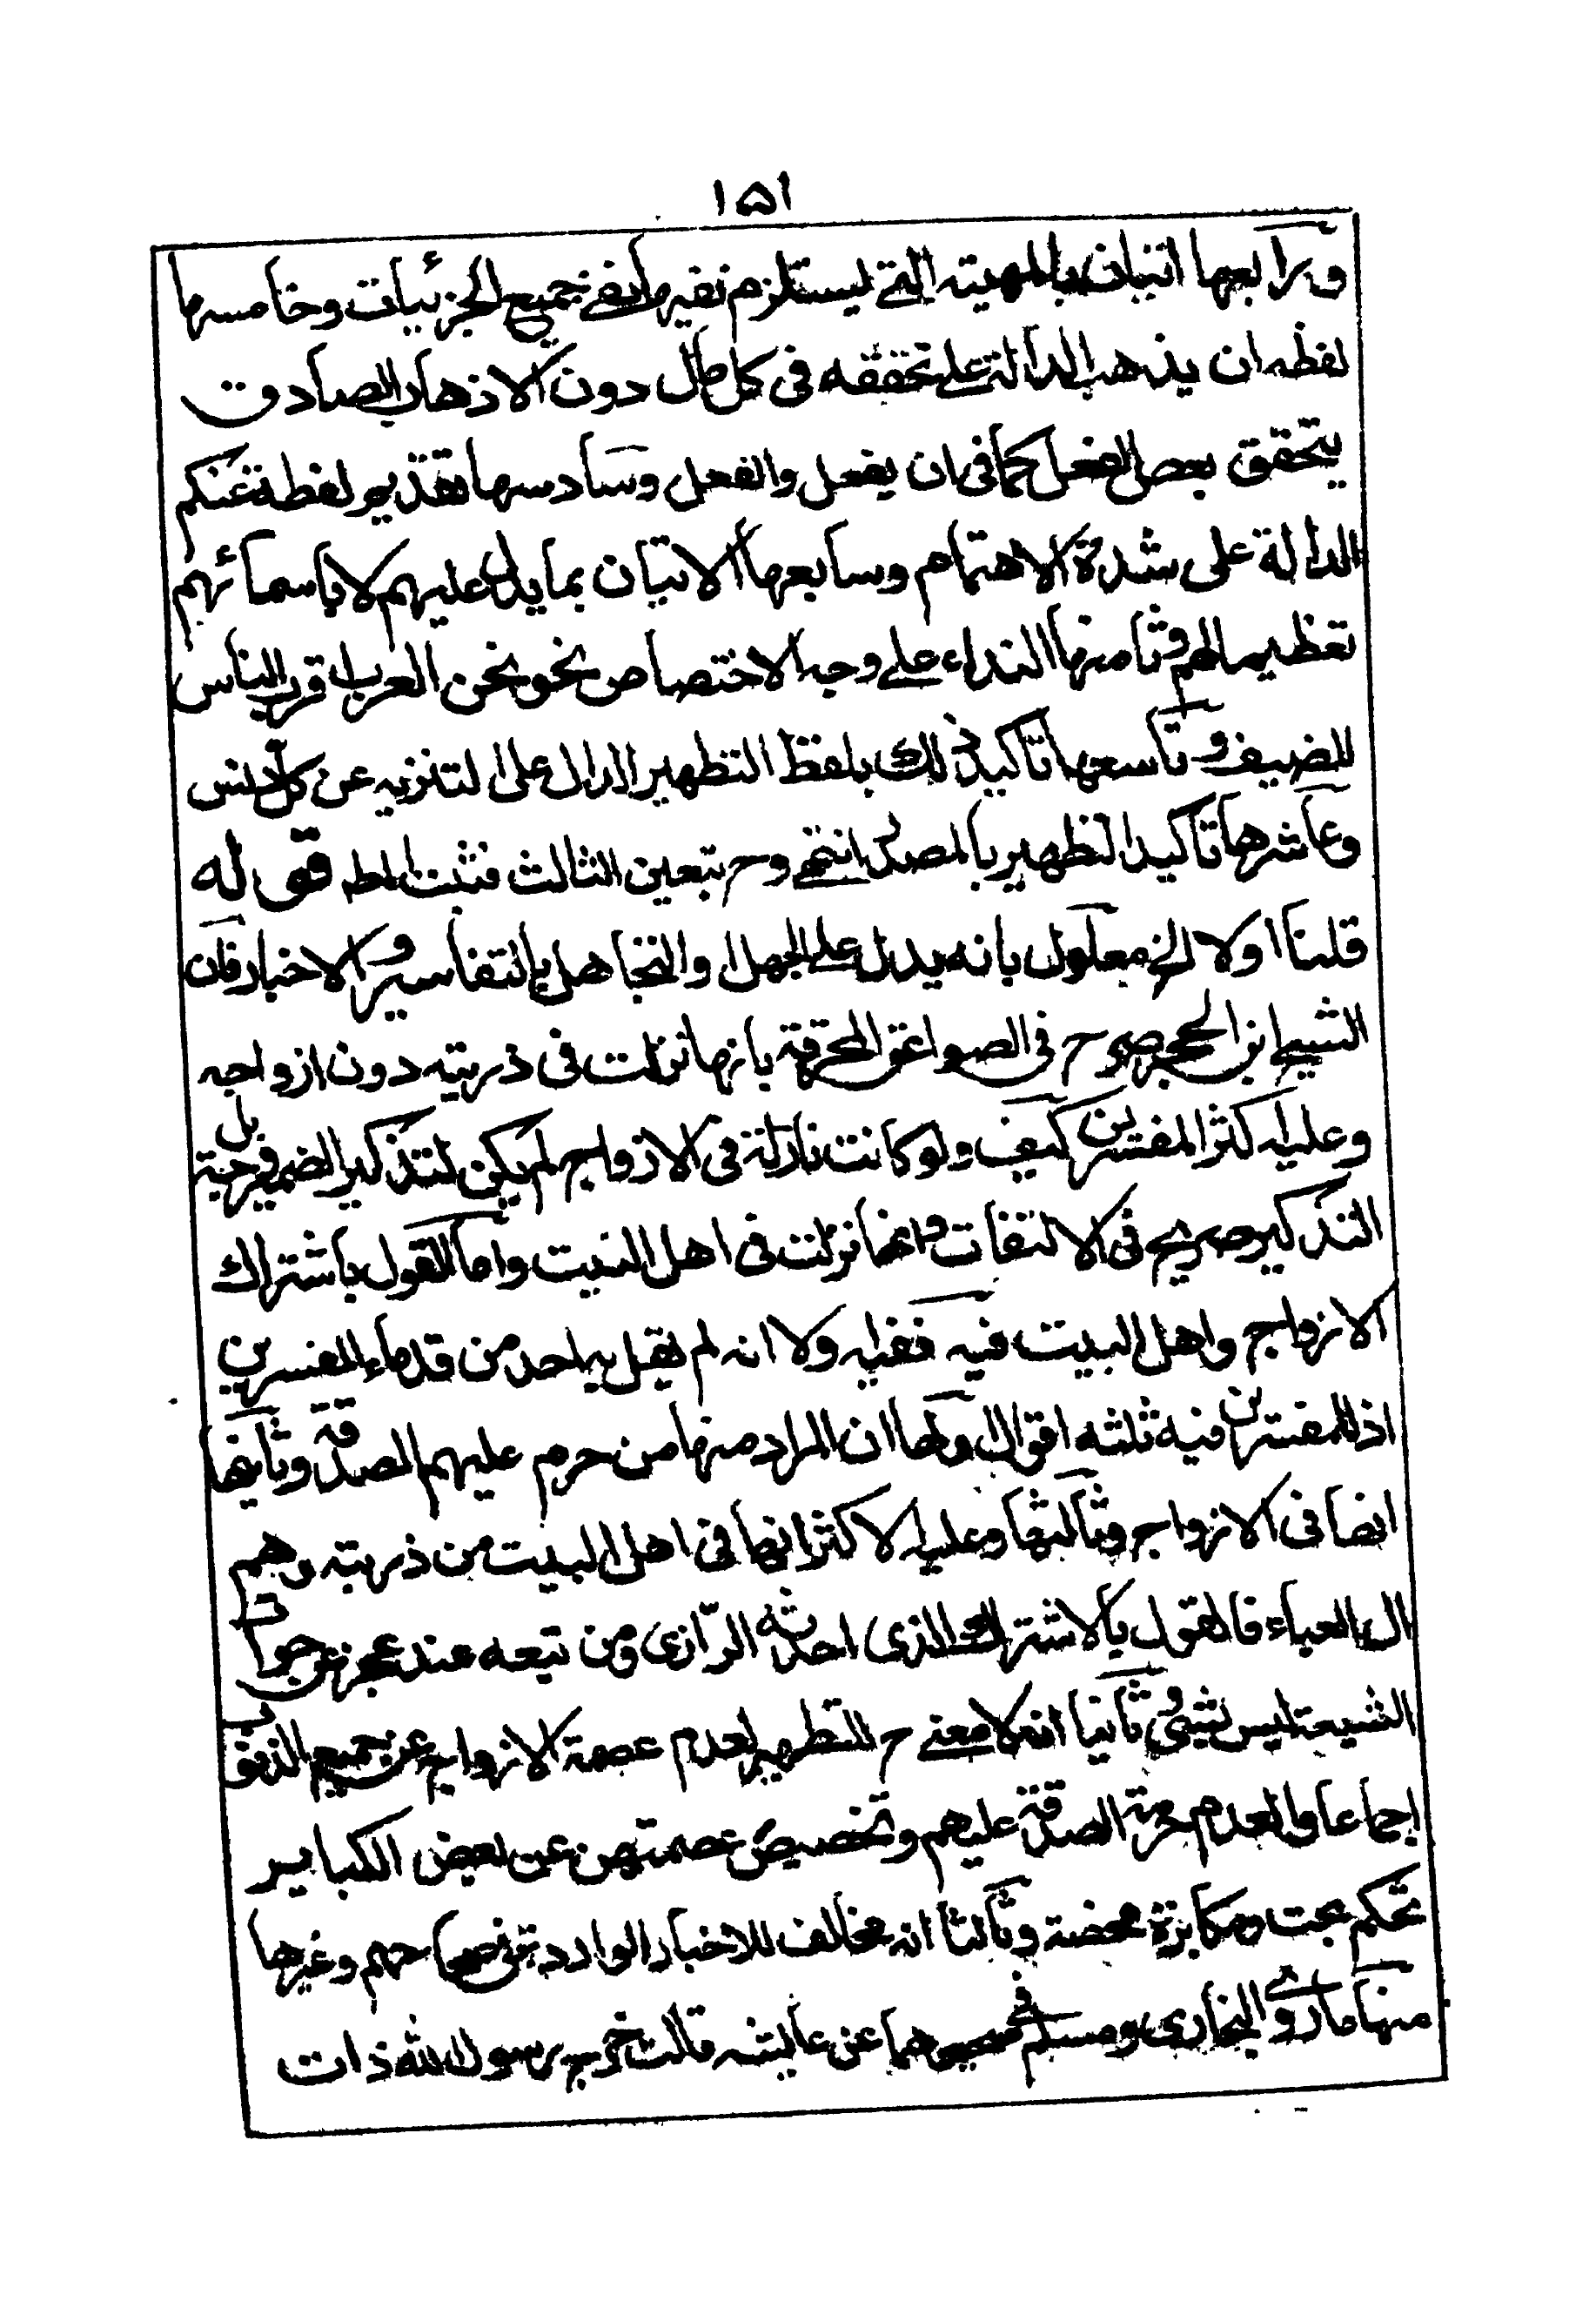 ١٥١
ورابعها اتيان بالمهية التى يستلزم نفيها نفى جميع الجزئيات وخامسها
لفظه ان يذهب الدالة على تحققه فى كل حال دون الاذهاب الصادق
يتحقق بعض الفعل كما فى ان يفعل والفعل وسادسها تقديم لفظة عنكم
الدالة على شدة الاهتمام وسابعها الاتيان بما يدل عليهم لا باسمائهم
تعظيما لهم وثامنها النداء على وجه الاختصاص نحو نحن العرب اقرب الناس
للضيف وتاسعها تاكيد ذلك بلفظ التطهير الدال على التنزيه عن كل دنس
وعاشرها تاكيد التطهير بالمصدر انتهى وح تبعين الثالث فثبت المط قوله
قلنا اولا الخ معلول بانه يدل على الجهل والتجاهل بالتفاسير والاخبار فان
الشيخ ابن الحجر صرح فى الصواعق المحرقة بانها نزلت فى ذريته دون ازواجه
وعليه اكثر المفسرين كيف ولو كانت نازلة فى الازواج لم يكن لتذكير الضمير جهة بل
التذكير صريح فى الالتفات وانما نزلت فى اهل البيت واما القول باشتراك
الازواج واهل البيت فيه ففيه ولا انه لم يقل به احد من قدماء المفسرين
اذ للمفسرين فيه ثلثه اقوال اولها ان المراد منها من حرم عليهم الصدقة وثانيها
انها فى الازواج وثالثها وعليه الاكثر انها فى اهل البيت من ذريته وهم
ال العباء فالقول بالاشتراك الذى احدثه الرازى ومن تبعه عند عجزه عن جواب
الشيعة ليس بشئ وثانيا انه لا معنى ح للتطهير لعدم عصمة الازواج عن جميع الذنوب
اجماعا ولعدم حرمة الصدقة عليهم وتخصيص عصمتهن عن بعض الكباير
تحكم بحت ومكابرة محضة وثالثا انه مخالف للاخبار الواردة فى صحاحهم وغيرها
منها ما روى البخارى ومسلم فى صحيحهما عن عايشه قالت خرج رسول الله ذات